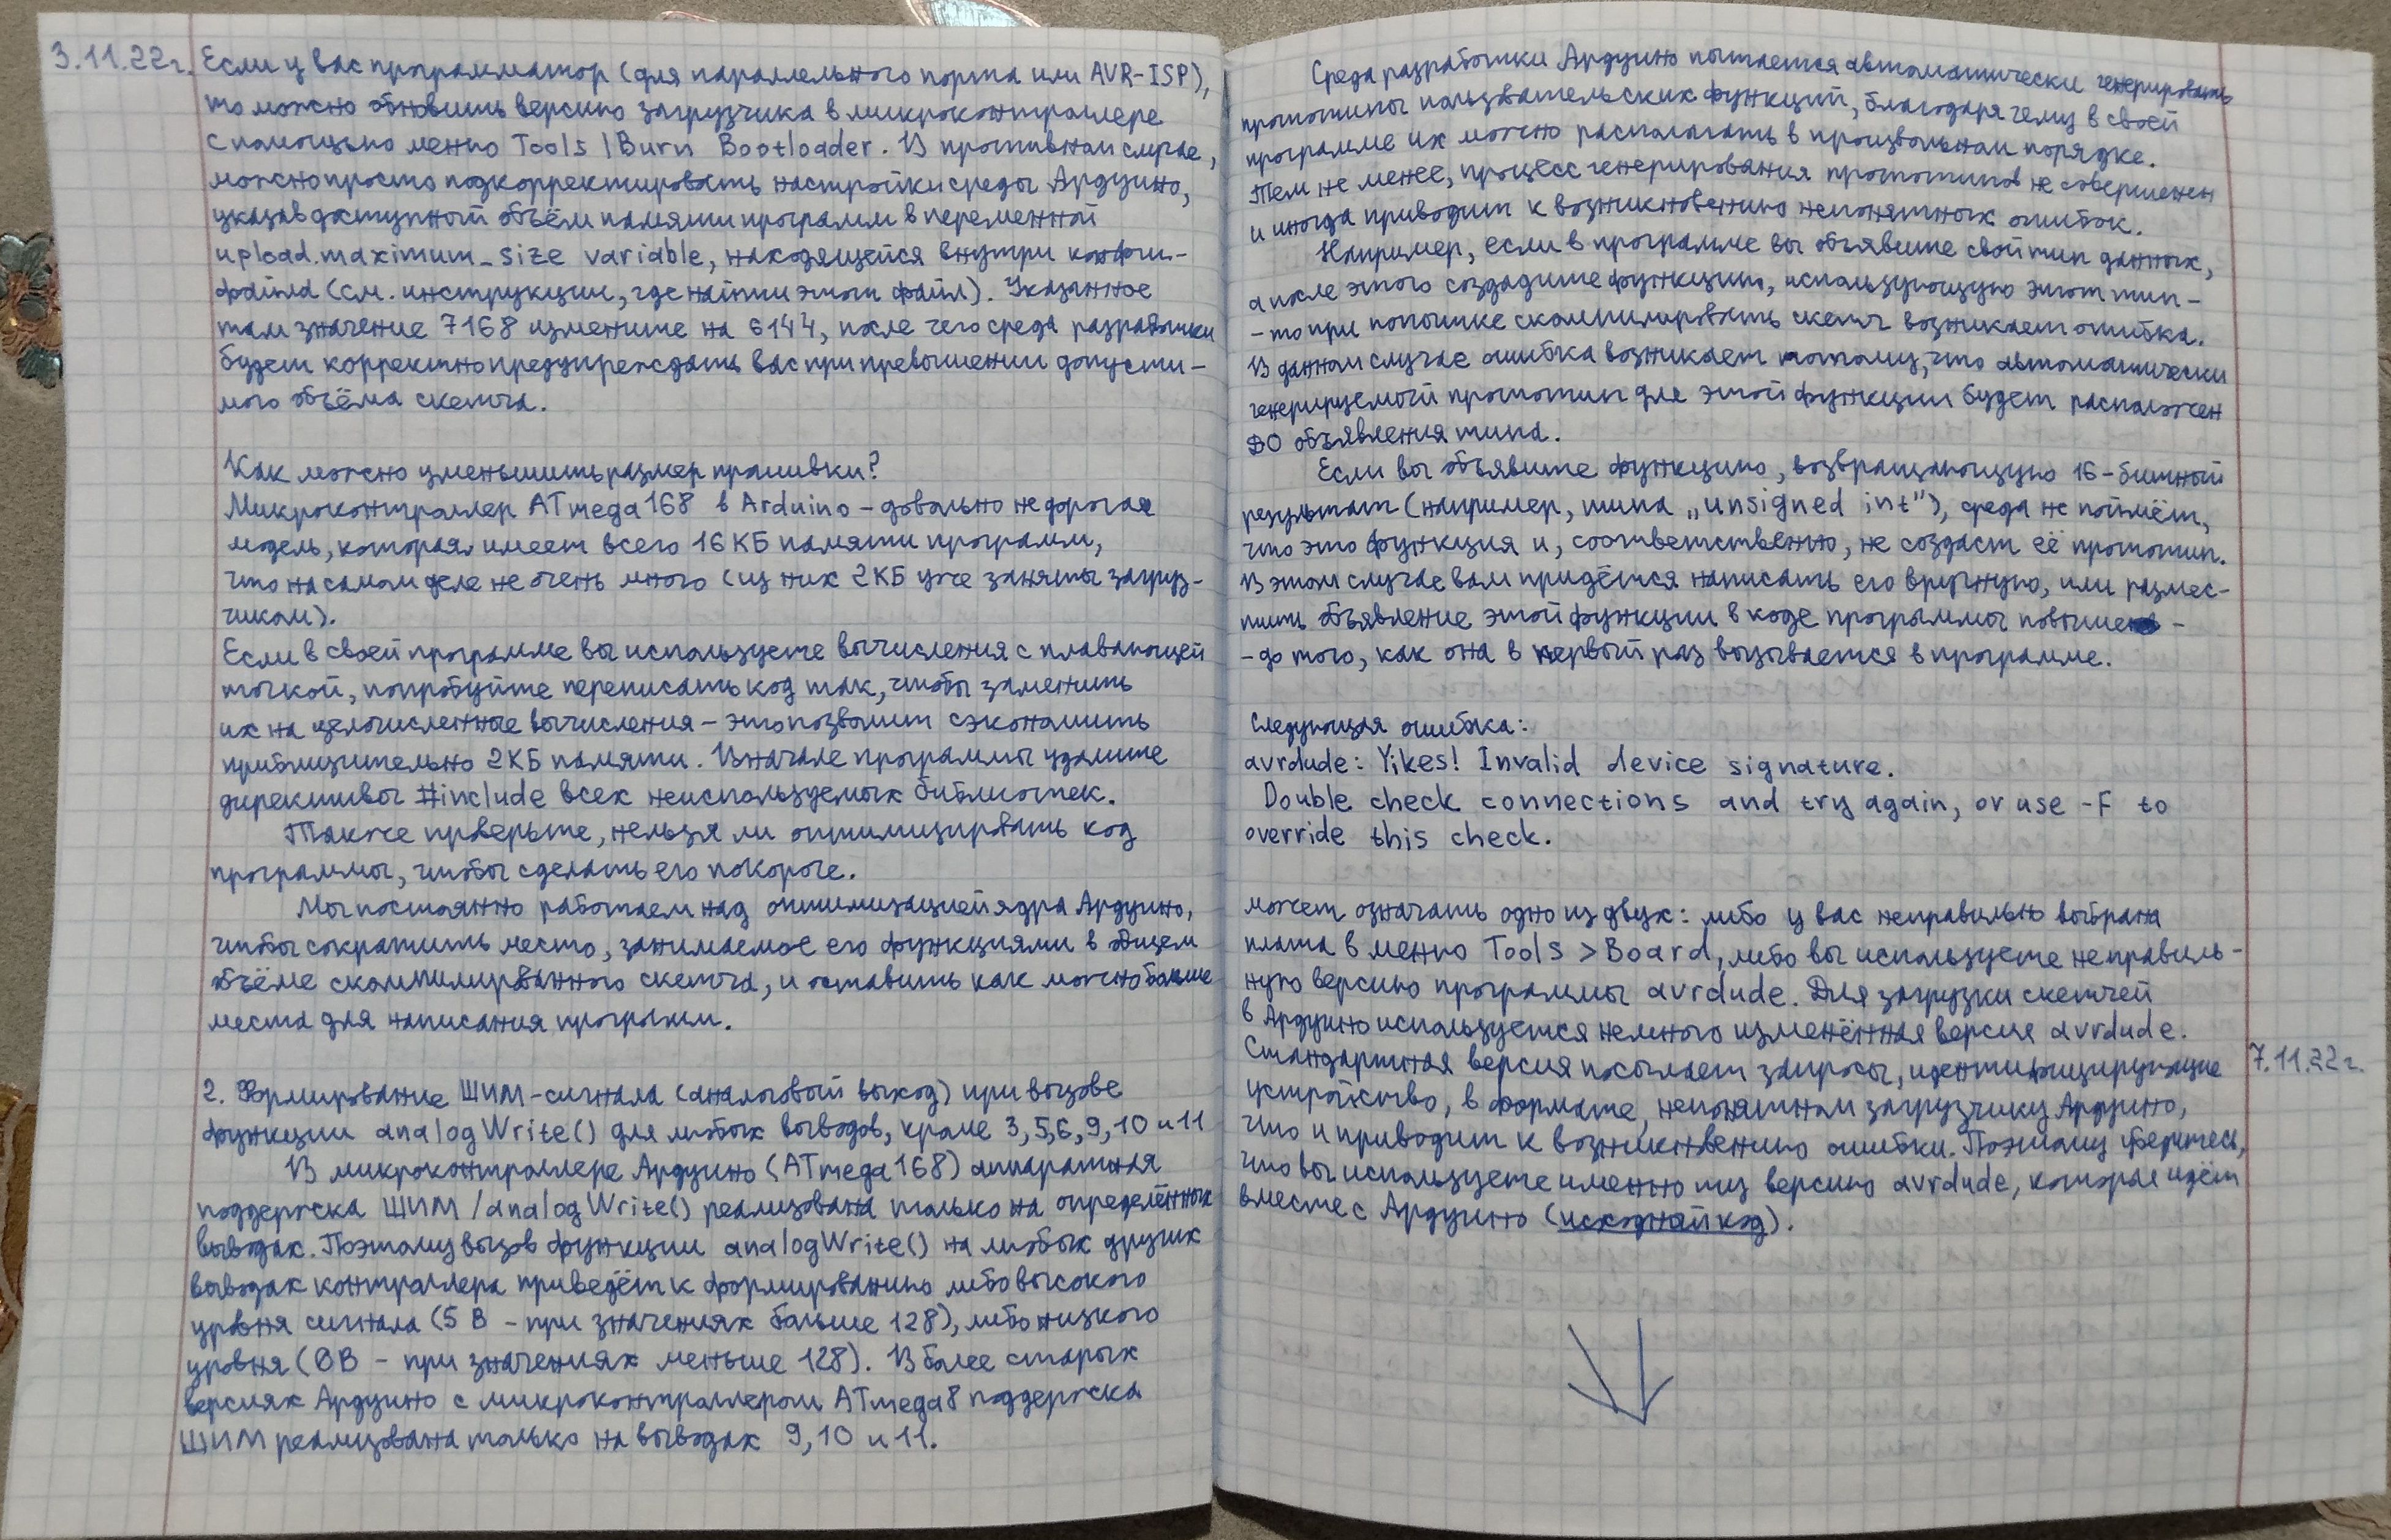 3.11.22г. Если у вас программатор (для параллельного порта или AVR-ISP),
то можно обновить версию загрузчика в микроконтроллере
с помощью меню Tools | Burn Bootloader. В противном случае,
можно просто подкорректировать настройки среды Ардуино,
указав доступный объём памяти программ в переменной
upload.maximum_size variable, находящейся внутри конфиг-
файла (см. инструкции, где найти этот файл). Указанное
там значение 7168 измените на 6144, после чего среда разработки
будет корректно предупреждать вас при превышении допусти-
мого объёма скетча.
Как можно уменьшить размер прошивки?
Микроконтроллер ATmega168 в Arduino - довольно недорогая
модель, которая имеет всего 16КБ памяти программ,
что на самом деле не очень много (из них 2КБ уже заняты загруз-
чиком).
Если в своей программе вы используете вычисления с плавающей
точкой, попробуйте переписать код так, чтобы заменить
их на целочисленные вычисления - это позволит сэкономить
приблизительно 2КБ памяти. В начале программы удалите
директивы #include всех неиспользуемых библиотек.
Также проверьте, нельзя ли оптимизировать код
программы, чтобы сделать его покороче.
Мы постоянно работаем над оптимизацией ядра Ардуино,
чтобы сократить место, занимаемое его функциями в общем
объёме скомпилированного скетча, и оставить как можно больше
места для написания программ.
2. Формирование ШИМ-сигнала (аналоговый выход) при вызове
функции analogWrite() для любых выводов, кроме 3,5,6,9,10 и 11
В микроконтроллере Ардуино (ATmega168) аппаратная
поддержка ШИМ/analogWrite() реализована только на определённых
выводах. Поэтому вызов функции analogWrite() на любых других
выводах контроллера приведёт к формированию либо высокого
уровня сигнала (5 В - при значениях больше 128), либо низкого
уровня (0В - при значениях меньше 128). В более старых
версиях Ардуино с микроконтроллером ATmega8 поддержка
ШИМ реализована только на выводах 9,10 и 11.
Среда разработки Ардуино пытается автоматически генерировать
прототипы пользвательских функций, благодаря чему в своей
программе их можно располагать в произвольном порядке.
Тем не менее, процесс генерирования прототипов не совершенен
и иногда приводит к возникновению непонятных ошибок.
Например, если в программе вы объявите свой тип данных,
а после этого создадите функцию, использующую этот тип -
- то при попытке скомпилировать скетч возникает ошибка.
В данном случае ошибка возникает потому, что автоматически
генерируемый прототип для этой функции будет расположен
ДО объявления типа.
Если вы объявите функцию, возвращающую 16-битный
результат (например, типа „unsigned int"), среда не поймёт,
что это функция и, соответственно, не создаст её прототип.
В этом случае вам придётся написать его вручную, или размес-
тить объявление этой функции в коде программы повыше -
- до того, как она в первый раз вызывается в программе.
Следующая ошибка:
avrdude: Yikes! Invalid device signature.
Double check connections and try again, or use -F to
override this check.
может означать одно из двух: либо у вас неправильно выбрана
плата в меню Tools > Board, либо вы используете неправиль-
ную версию программы avrdude. Для загрузки скетчей
в Ардуино используется немного изменённая версия avrdude.
Стандартная версия посылает запросы, идентифицирующие 7.11.22г.
устройство, в формате, непонятном загрузчику Ардуино,
что и приводит к возникновению ошибки. Поэтому уберитесь,
что вы используете именно ту версию avrdude, которая идёт
вместе с Ардуино (исходный код).